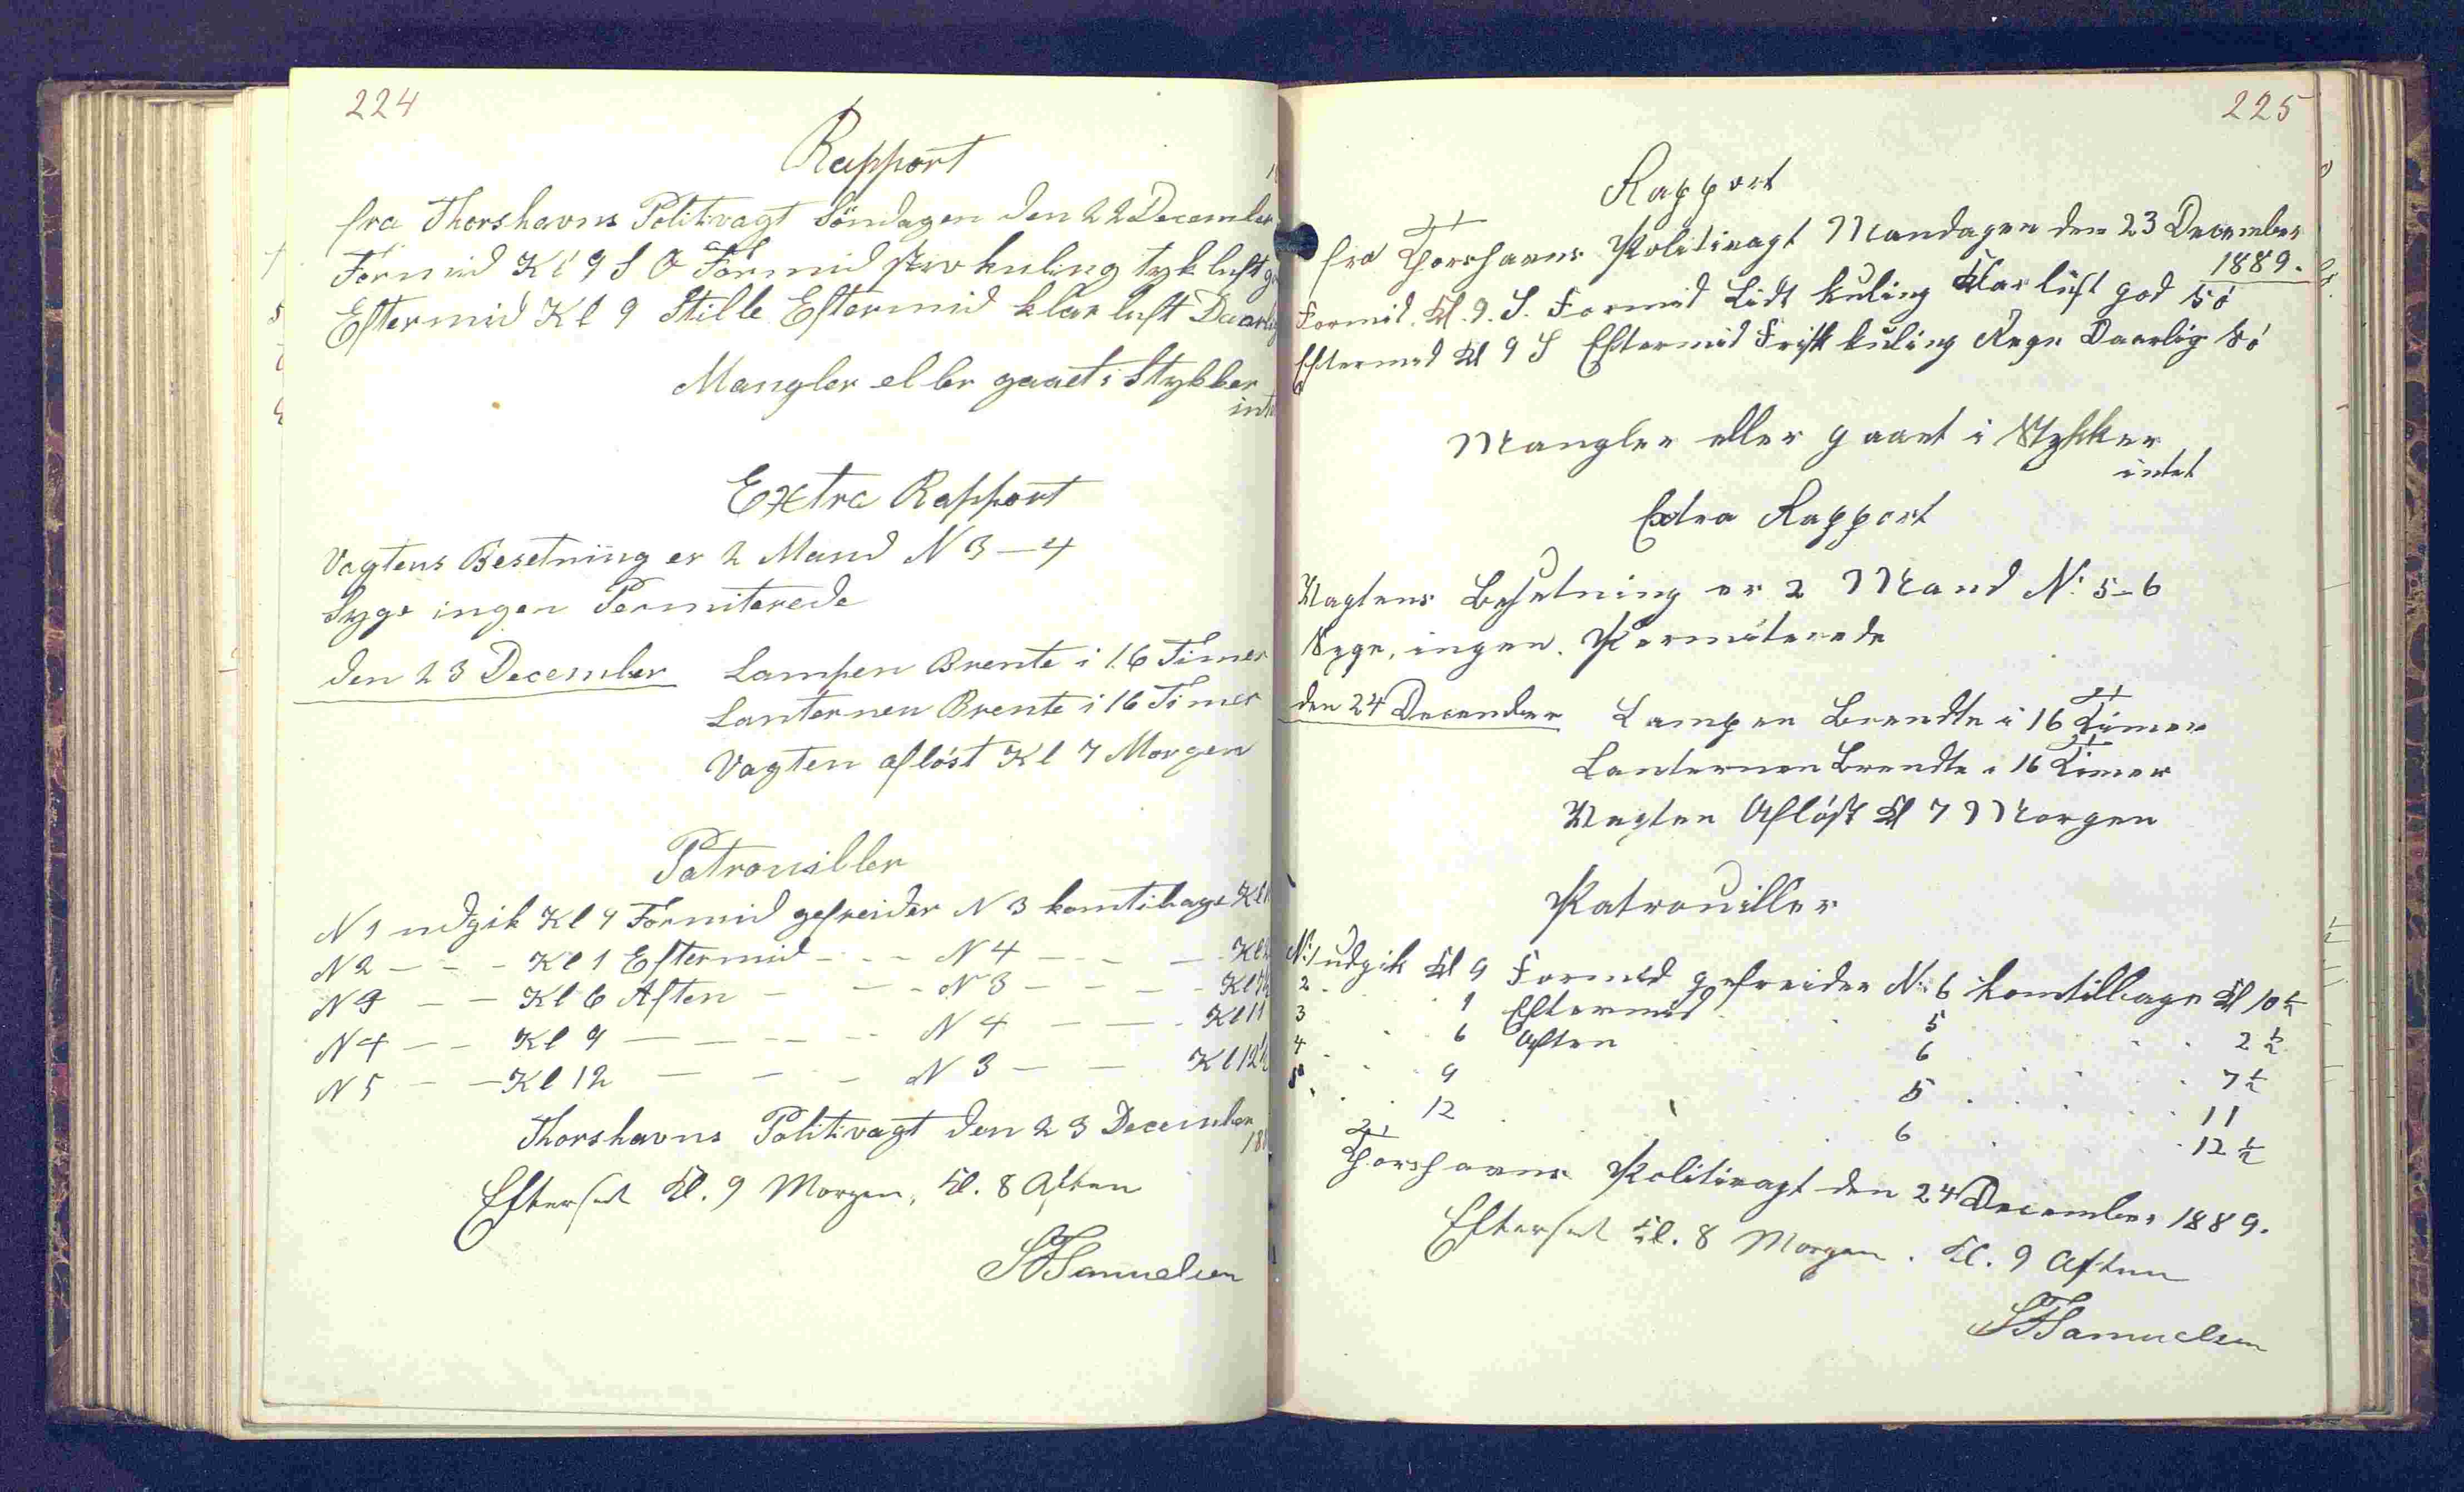 224
Rapport
fra Thorshavns Politivagt Söndagen den 22 December
Formid Kl 9 S O Formid stiv kuling tyk luft
Eftermid Kl 9 Stille Eftermid klar luft
Mangler eller gaaet i Stykker
Extra Rapport
Vagtens Besetning er 2 Mand N 3 — 4
Syge ingen Permiterede
den 23 December Lampen Brente i 16 Timer
Lanternen Brente i 16 Timer
Vagten aflöst Kl 7 Morgen
Patrouiller
N 1 udgik Kl 9 Formid gefreider N 3 komtibage
N 2 — - - Kl 1 Eftermid - - - N 4 — - - —
— — Kl 6 Aften — — - N 3 — - — -
N 4 — - Kl 9 — — — - - N 4 — — - Kl 11
N 5 — — Kl 12 — — - N 3 — — Kl 12½
Thorshavns Politivagt den 23 December
Efterset Kl. 9 Morgen, Kl. 8 Aften
Samuelsen
225
Rapport
fra Thorshavns Politivagt Mandagen den 23 December
1889.
Formid. Kl. 9. S. Formid Lidt kuling Klar luft god Sö
Eftermid Kl 9 S Eftermid Frisk kuling Regn Daarlig Sö
Mangler eller gaaet i Stykker
intet
Extra Rapport
Vagtens Besetning er 2 Mand N: 5-6
Syge, ingen. Permiterede
den 24 December Lampen Brendte i 16 Timer
Lanternen Brendte i 16 Timer
Vagten Aflöst Kl 7 Morgen
Patrouiller
N: 1 udgik Kl 9 Formid gefreider N: 6 komtilbage Kl 10½
2 . . 1 Eftermid . . 5 . . 2½
3 . . 6 Aften . . 6 . . 7½
4 . . 9 . . 5 . . 11
5 . . 12 . . 6 . . 12½
Thorshavns Politivagt den 24 December 1889.
Efterset Kl. 8 Morgen. Kl. 9 Aften
Samuelsen